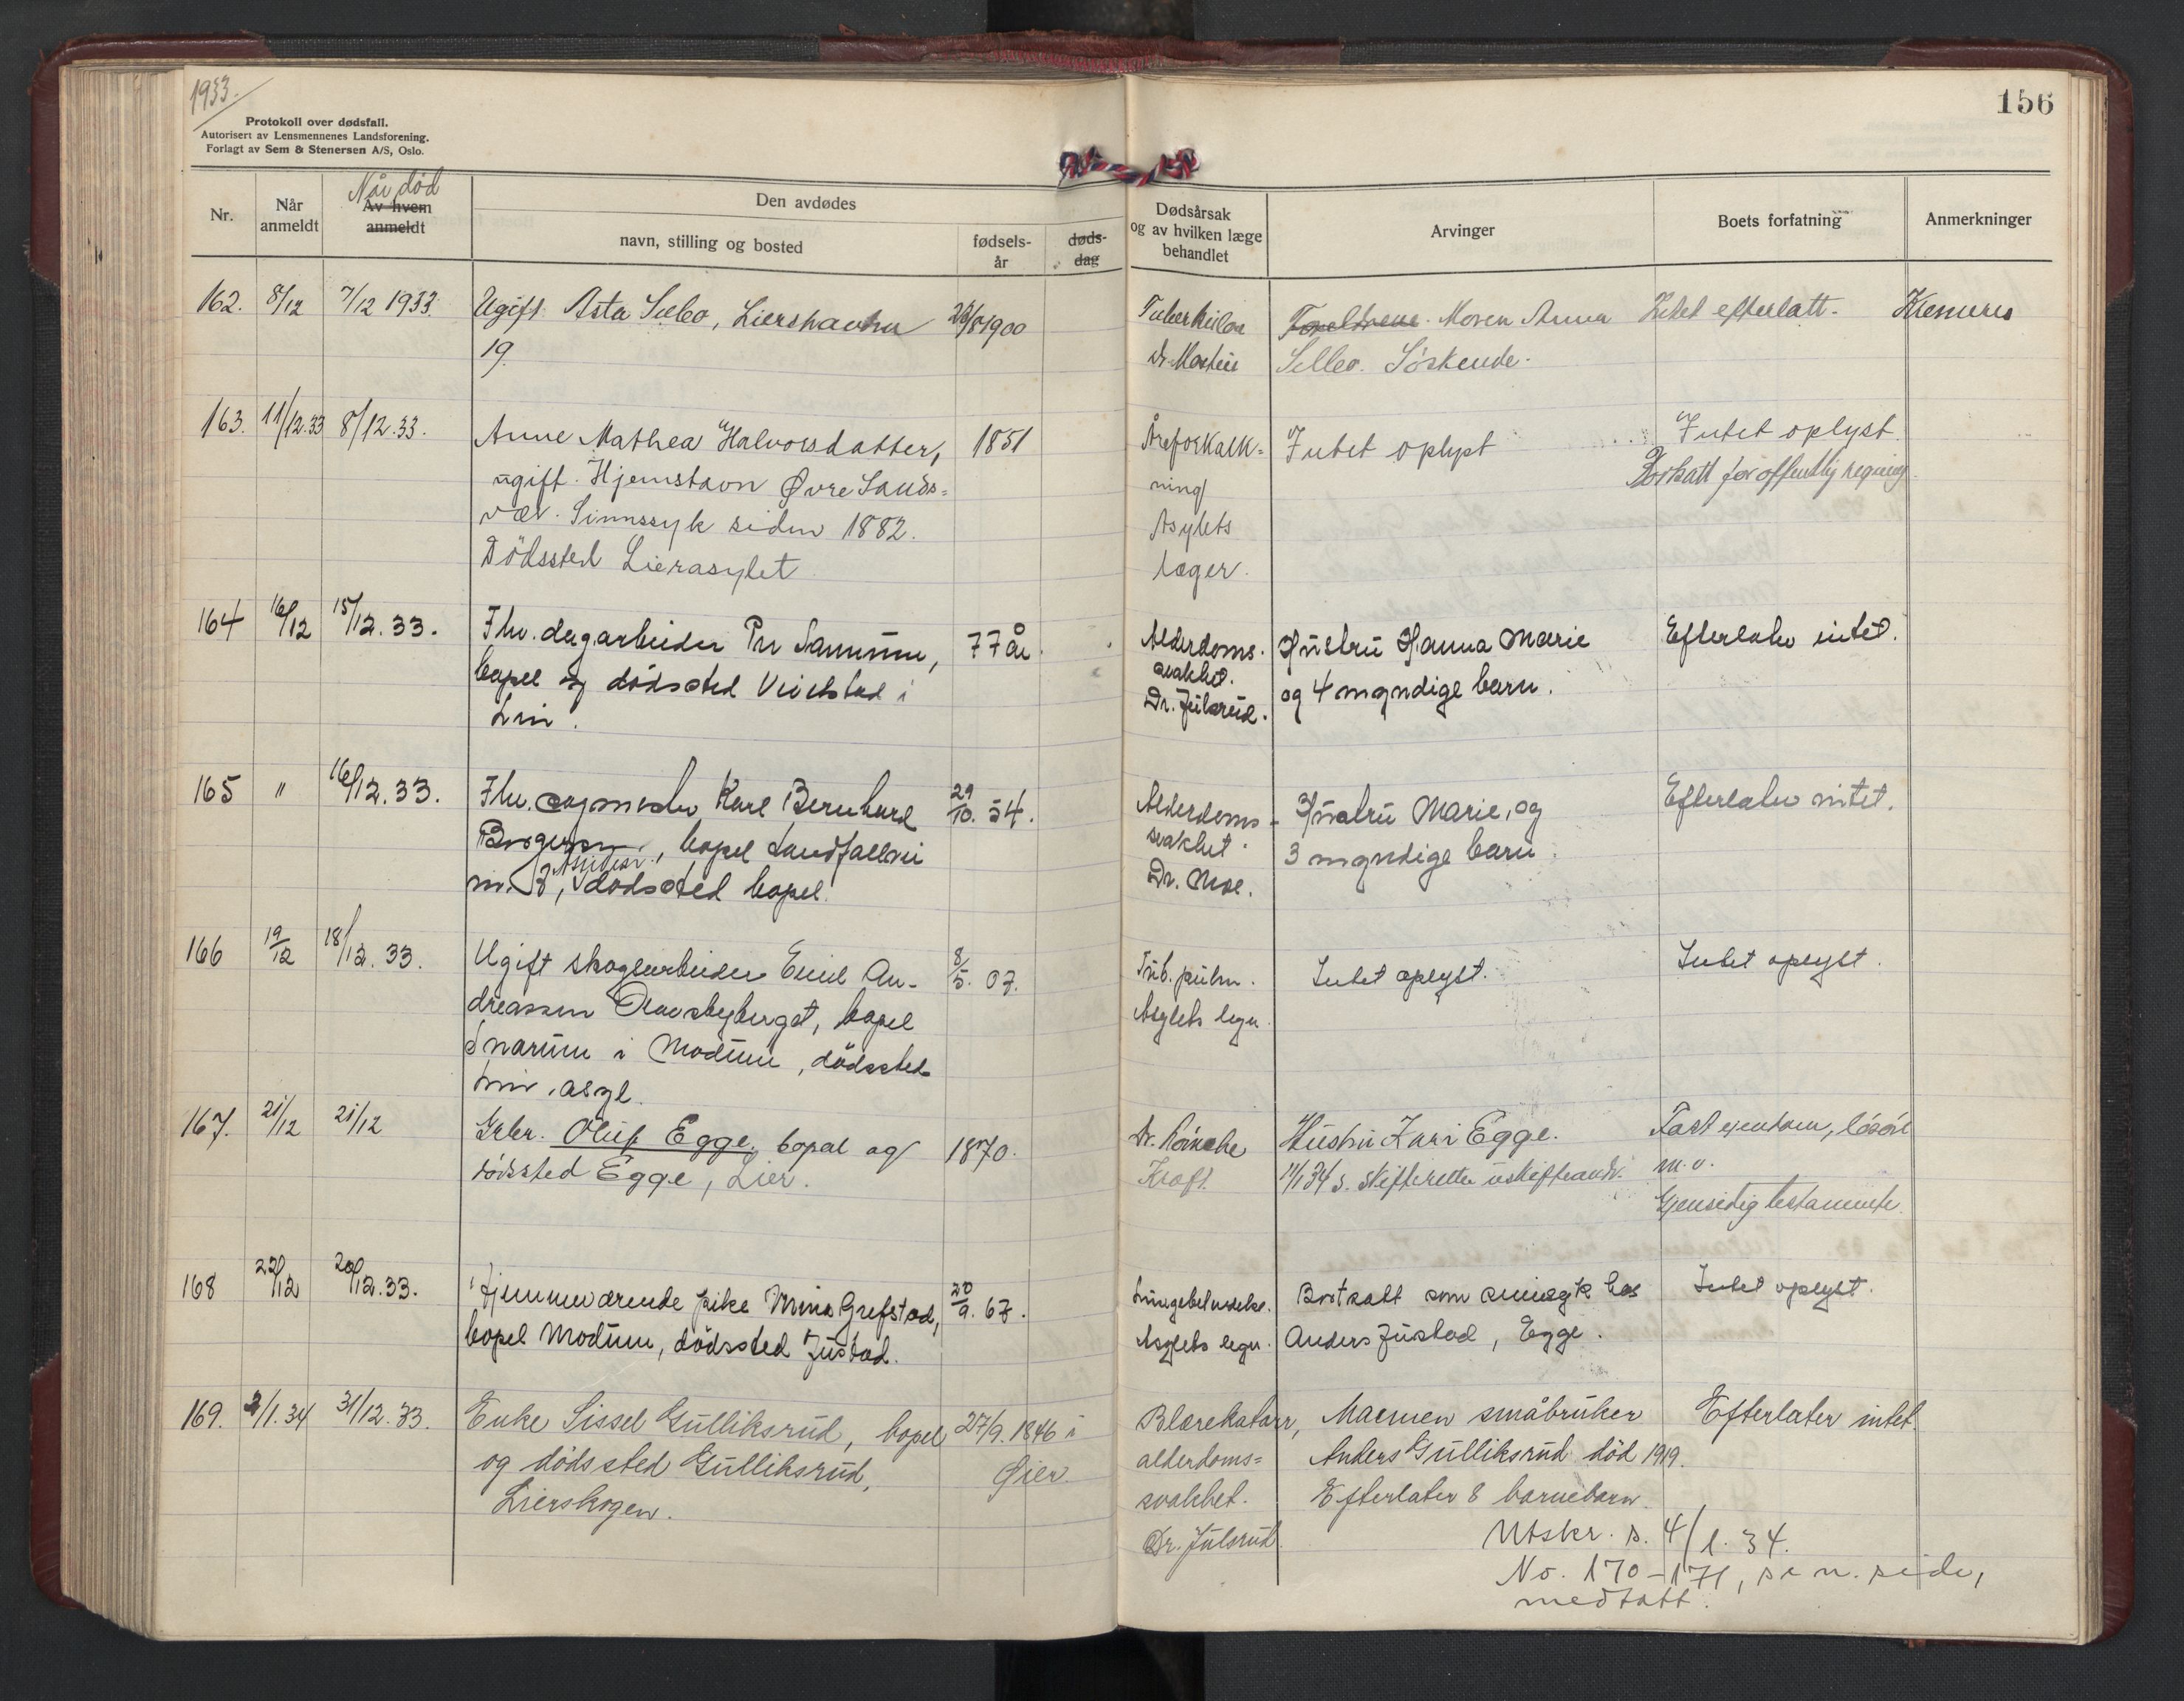 1933.
Protokoll over dødsfall.
Autorisert av Lensmennenes Landsforening.
Forlagt av Sem & Stenersen A/S, Oslo.
156
Nr.
Når anmeldt
Når død
Av hvem anmeldt
Den avdødes
navn, stilling og bosted
fødsels-år
døds-dag
Dødsårsak og av hvilken læge behandlet
Arvinger
Boets forfatning
Anmerkninger
162. 8/12 7/12 1933. Ugift Asta Sælbo, Liershavnen 26/8 1900
19.
Tuberkulos
Dr.
Foreldrene. Moren Anna
Selbo. Søskende.
Intet efterlatt.
163. 11/12.33 8/12.33. Anne Mathea Halvorsdatter, 1851
ugift. Hjemstavn Øvre Sands=
vær. Sinnssyk siden 1882.
Dödssted Lierasylet
Åreforkalk=
ning
Asylets
læger.
Intet oplyst
Intet oplyst.
Forkatt for offentlig regning.
164 16/12 15/12.33. Fhv. dagarbeider Per Sammum, 77 år.
bopel og dödssted Veikstad i
Lier.
Alderdoms.
svakhet.
Dr. Julsrud.
Hustru Hanna Marie
og 4 myndige barn.
Efterlater intet.
165 " 16/12.33. Fhv. sagmester Karl Bernhard 29/10. 54.
Borgersen, bopel Landfallvei
nr. 3, V. dödssted bopel.
Alderdoms-
svakhet.
Dr. Moe.
Hustru Marie, og
3 myndige barn.
Efterlater intet.
166 19/12 18/12.33. Ugift skogsarbeider Emil An- 8/5. 07.
dreassen Ravsbyberget, bopel
Snarum i Modum, dödssted
Lier. asyl.
Tub. pulm.
Asylets leger
Intet oplyst.
Intet oplyst.
167. 21/12 21/12 Grbr. Oluf Egge, bopæl og 1870.
dödssted Egge, Lier.
Dr.
Kreft.
Hustru Kari Egge.
11/1 34 s. skifteretten uskifteandr.
Fast ejendom, løsøre
m.v.
Gjensidig testamente.
168 22/12 20/12.33. Hjemmeværende pike Mina Grefstad, 20/9. 67.
bopel Modum, dödssted Justad.
Lungebetendelse.
Asylets leger.
Bortsatt som sinnsyk hos
Anders Justad, Egge.
Intet oplyst.
169. 2/1.34 31/12.33. Enke Sissel Gulliksrud, bopel 27/9. 1846 i
og dödssted Gulliksrud, Øier.
Lierskogen.
Blærekatarr,
alderdoms=
svakhet.
Dr. Julsrud.
Mannen småbruker
Anders Gulliksrud död 1919.
Efterlater 8 barnebarn.
Efterlater intet.
Utskr. s. 4/1. 34.
No. 170-171, se n. side,
medtatt.